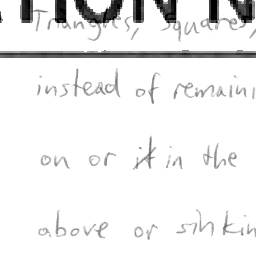 Triangles, squares,
instead of remaini
on or in the
above or sinkin